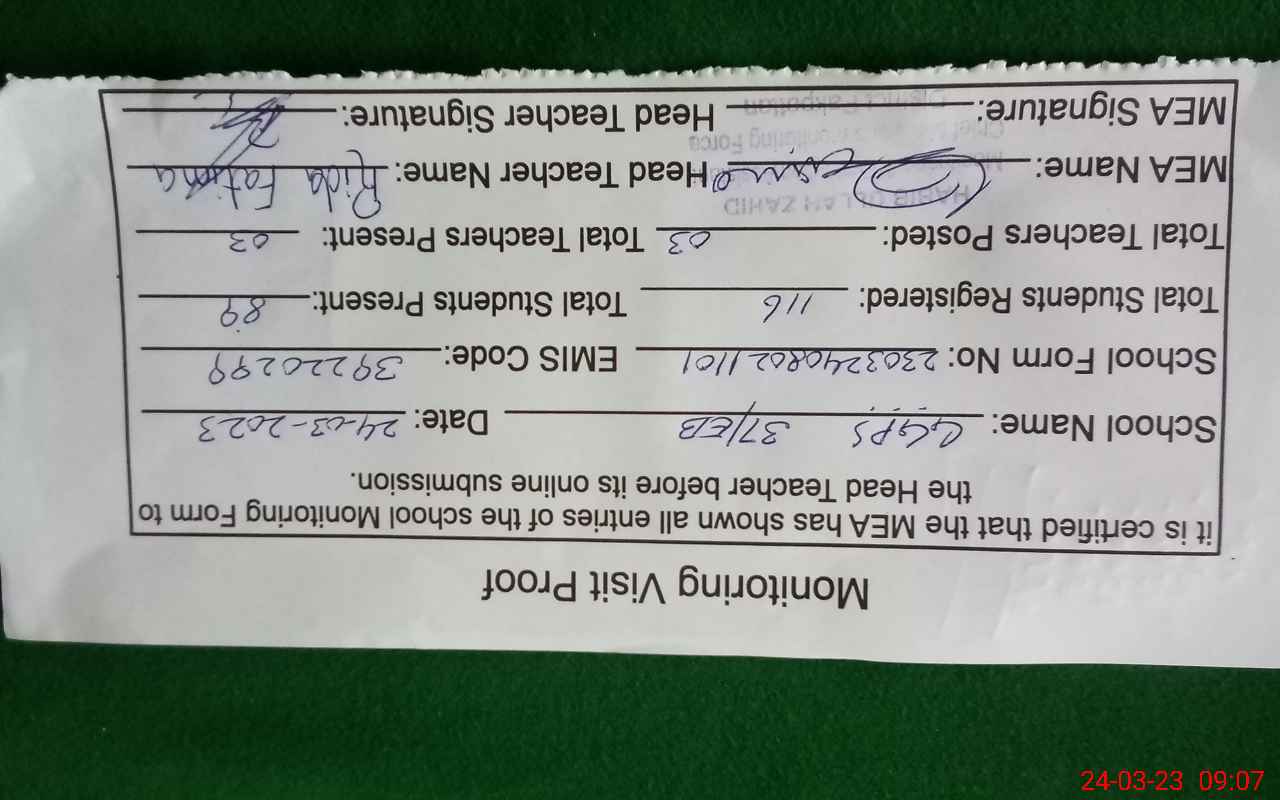 Monitoring Visit Proof
it is certified that the MEA has shown all entries of the school Monitoring Form to
the Head Teacher before its online submission.
School Name: GGPS 37/EB Date: 24-03-2023
School Form No: 23032408021101 EMIS Code: 39220299
Total Students Registered: 116 Total Students Present: 89
Total Teachers Posted: 03 Total Teachers Present: 03
HABIB ULLAH ZAHID
MEA Name: Head Teacher Name: Rida Fatima
Chief Monitoring Force
MEA Signature: Head Teacher Signature:
District Pakpattan
24-03-23 09:07